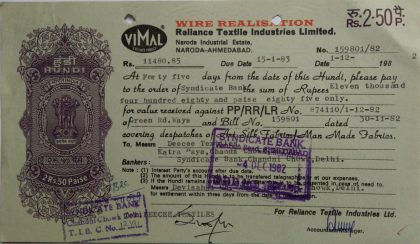 WIRE REALISATION
रु. 2·50 पै.
VIMAL
Reliance Textile Industries Limited.
Naroda Industrial Estate,
NARODA-AHMEDABAD.
No. 159801/82
Rs. 11480.85 Due Date 15-1-83 1-12- 198
हुंडी
HUNDI
At Forty five days from the date of this Hundi, please pay
to the order of Syndicate Bank the sum of Rupees Eleven thousand
four hundred eighty and paise eighty five only.
for value received against PP/RR/LR No. 874110/1-12-82
Green Rd.Ways and Bill No. 159801 dated 30-11-82
covering despatches of Art Silk Fabrics/Man Made Fabrics.
To Messrs Deecee Textiles
Katra
Bankers: Syndicate Bank, Chandni Chowk, Delhi.
SYNDICATE BANK
4 DEC 1982
(1) Interest Party's account after due date.
(2) The amount of this
(3) If the Hundi
Messrs Devisahai
for settlement within three days from the
2 Rs. 50 Paise
SYNDICATE BANK
Chowk, Delhi
T. I. B. C No.
DEECEE TEXTILES
For Reliance Textile Industries Ltd.
Accountant/Manager.